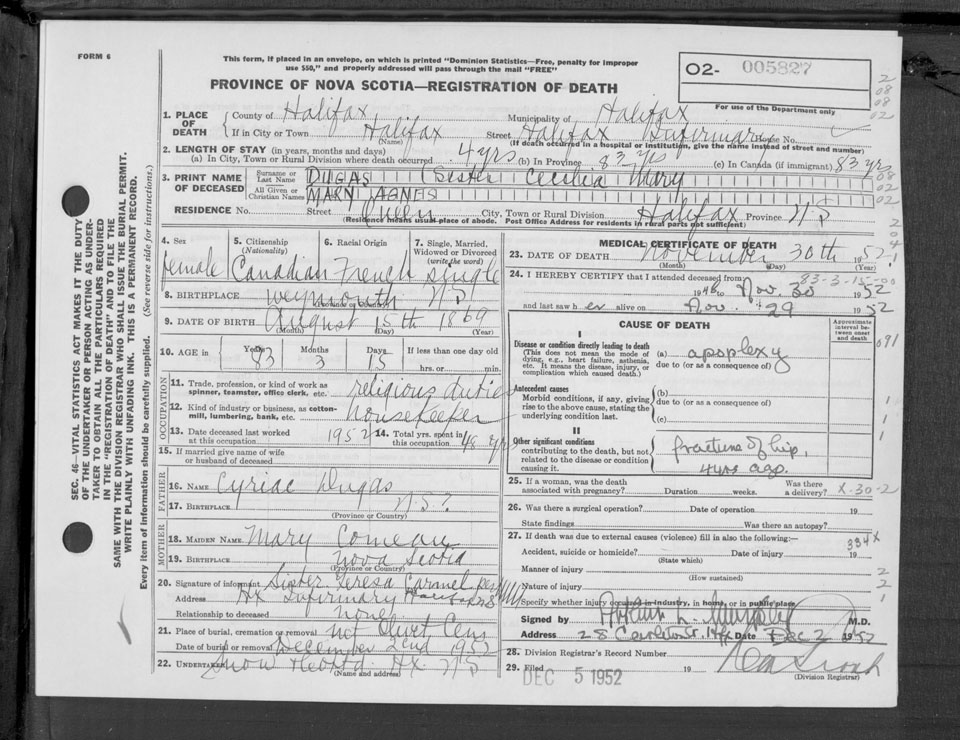 FORM 6
This form, if placed in an envelope, on which is printed "Dominion Statistics—Free, penalty for improper
use $50," and properly addressed will pass through the mail "FREE"
PROVINCE OF NOVA SCOTIA—REGISTRATION OF DEATH
O2- 005827
For use of the Department only
1. PLACE OF DEATH
County of Halifax Municipality of Halifax
If in City or Town Halifax Street Halifax Infirmary House No.
(Name) (If death occurred in a hospital or institution, give the name instead of street and number)
2. LENGTH OF STAY (in years, months and days)
(a) In City, Town or Rural Division where death occurred 4 yrs (b) In Province 83 yrs (c) In Canada (if immigrant) 83 yrs
3. PRINT NAME OF DECEASED
Surname or Last Name DUGAS (Sister Cecilia Mary
All Given or Christian Names MARY AGNES
RESIDENCE No. Street City, Town or Rural Division Halifax Province N S
(Residence means usual place of abode. Post Office Address for residents in rural parts not sufficient)
4. Sex female
5. Citizenship (Nationality) Canadian
6. Racial Origin French
7. Single, Married, Widowed or Divorced (write the word) single
8. BIRTHPLACE Weymouth N S
9. DATE OF BIRTH August 15th 1869
(Month) (Day) (Year)
10. AGE in Years 83 Months 3 Days 15 If less than one day old
hrs. or min.
OCCUPATION
11. Trade, profession, or kind of work as spinner, teamster, office clerk, etc. religious duties
12. Kind of industry or business, as cotton-mill, lumbering, bank, etc. Housekeeper
13. Date deceased last worked at this occupation 1952 14. Total yrs. spent in this occupation 48 yrs
15. If married give name of wife or husband of deceased
FATHER
16. NAME Cyriac Dugas
17. BIRTHPLACE N.S.
(Province or Country)
MOTHER
18. MAIDEN NAME Mary Comeau
19. BIRTHPLACE Nova Scotia
(Province or Country)
20. Signature of informant Sister Teresa Carmel
Address Hx Infirmary Halifax N S
Relationship to deceased none
21. Place of burial, cremation or removal Mt Olivet Cem
Date of burial or removal December 2nd 1952
22. UNDERTAKER Snow Hx N S
(Name and address)
MEDICAL CERTIFICATE OF DEATH
23. DATE OF DEATH November 30th 1952
(Month) (Day) (Year)
24. I HEREBY CERTIFY that I attended deceased from 83-3-15
1948 to Nov. 30 1952
and last saw h er alive on Nov. 29 1952
CAUSE OF DEATH
Approximate interval between onset and death
I
Disease or condition directly leading to death
(This does not mean the mode of dying, e.g., heart failure, asthenia, etc. It means the disease, injury, or complication which caused death.)
(a) apoplexy
due to (or as a consequence of)
Antecedent causes
Morbid conditions, if any, giving rise to the above cause, stating the underlying condition last.
(b)
due to (or as a consequence of)
(c)
II
Other significant conditions
contributing to the death, but not related to the disease or condition causing it.
fracture of hip,
4 yrs ago.
25. If a woman, was the death associated with pregnancy? Duration weeks. Was there a delivery? X-30-2
26. Was there a surgical operation? Date of operation 19
State findings Was there an autopsy?
27. If death was due to external causes (violence) fill in also the following:— 334X
Accident, suicide or homicide? Date of injury 19
(State which)
Manner of injury
(How sustained)
Nature of injury
Specify whether injury occurred in industry, in home, or in public place
Signed by M.D.
Address 28 Date Dec 2 1952
28. Division Registrar's Record Number
29. Filed DEC 5 1952 19
(Division Registrar)
SEC. 46—VITAL STATISTICS ACT MAKES IT THE DUTY
OF THE UNDERTAKER OR PERSON ACTING AS UNDER-
TAKER TO OBTAIN ALL THE PARTICULARS REQUIRED
IN THE "REGISTRATION OF DEATH" AND TO FILE THE
SAME WITH THE DIVISION REGISTRAR WHO SHALL ISSUE THE BURIAL PERMIT.
WRITE PLAINLY WITH UNFADING INK. THIS IS A PERMANENT RECORD.
Every item of information should be carefully supplied. (See reverse side for instructions.)